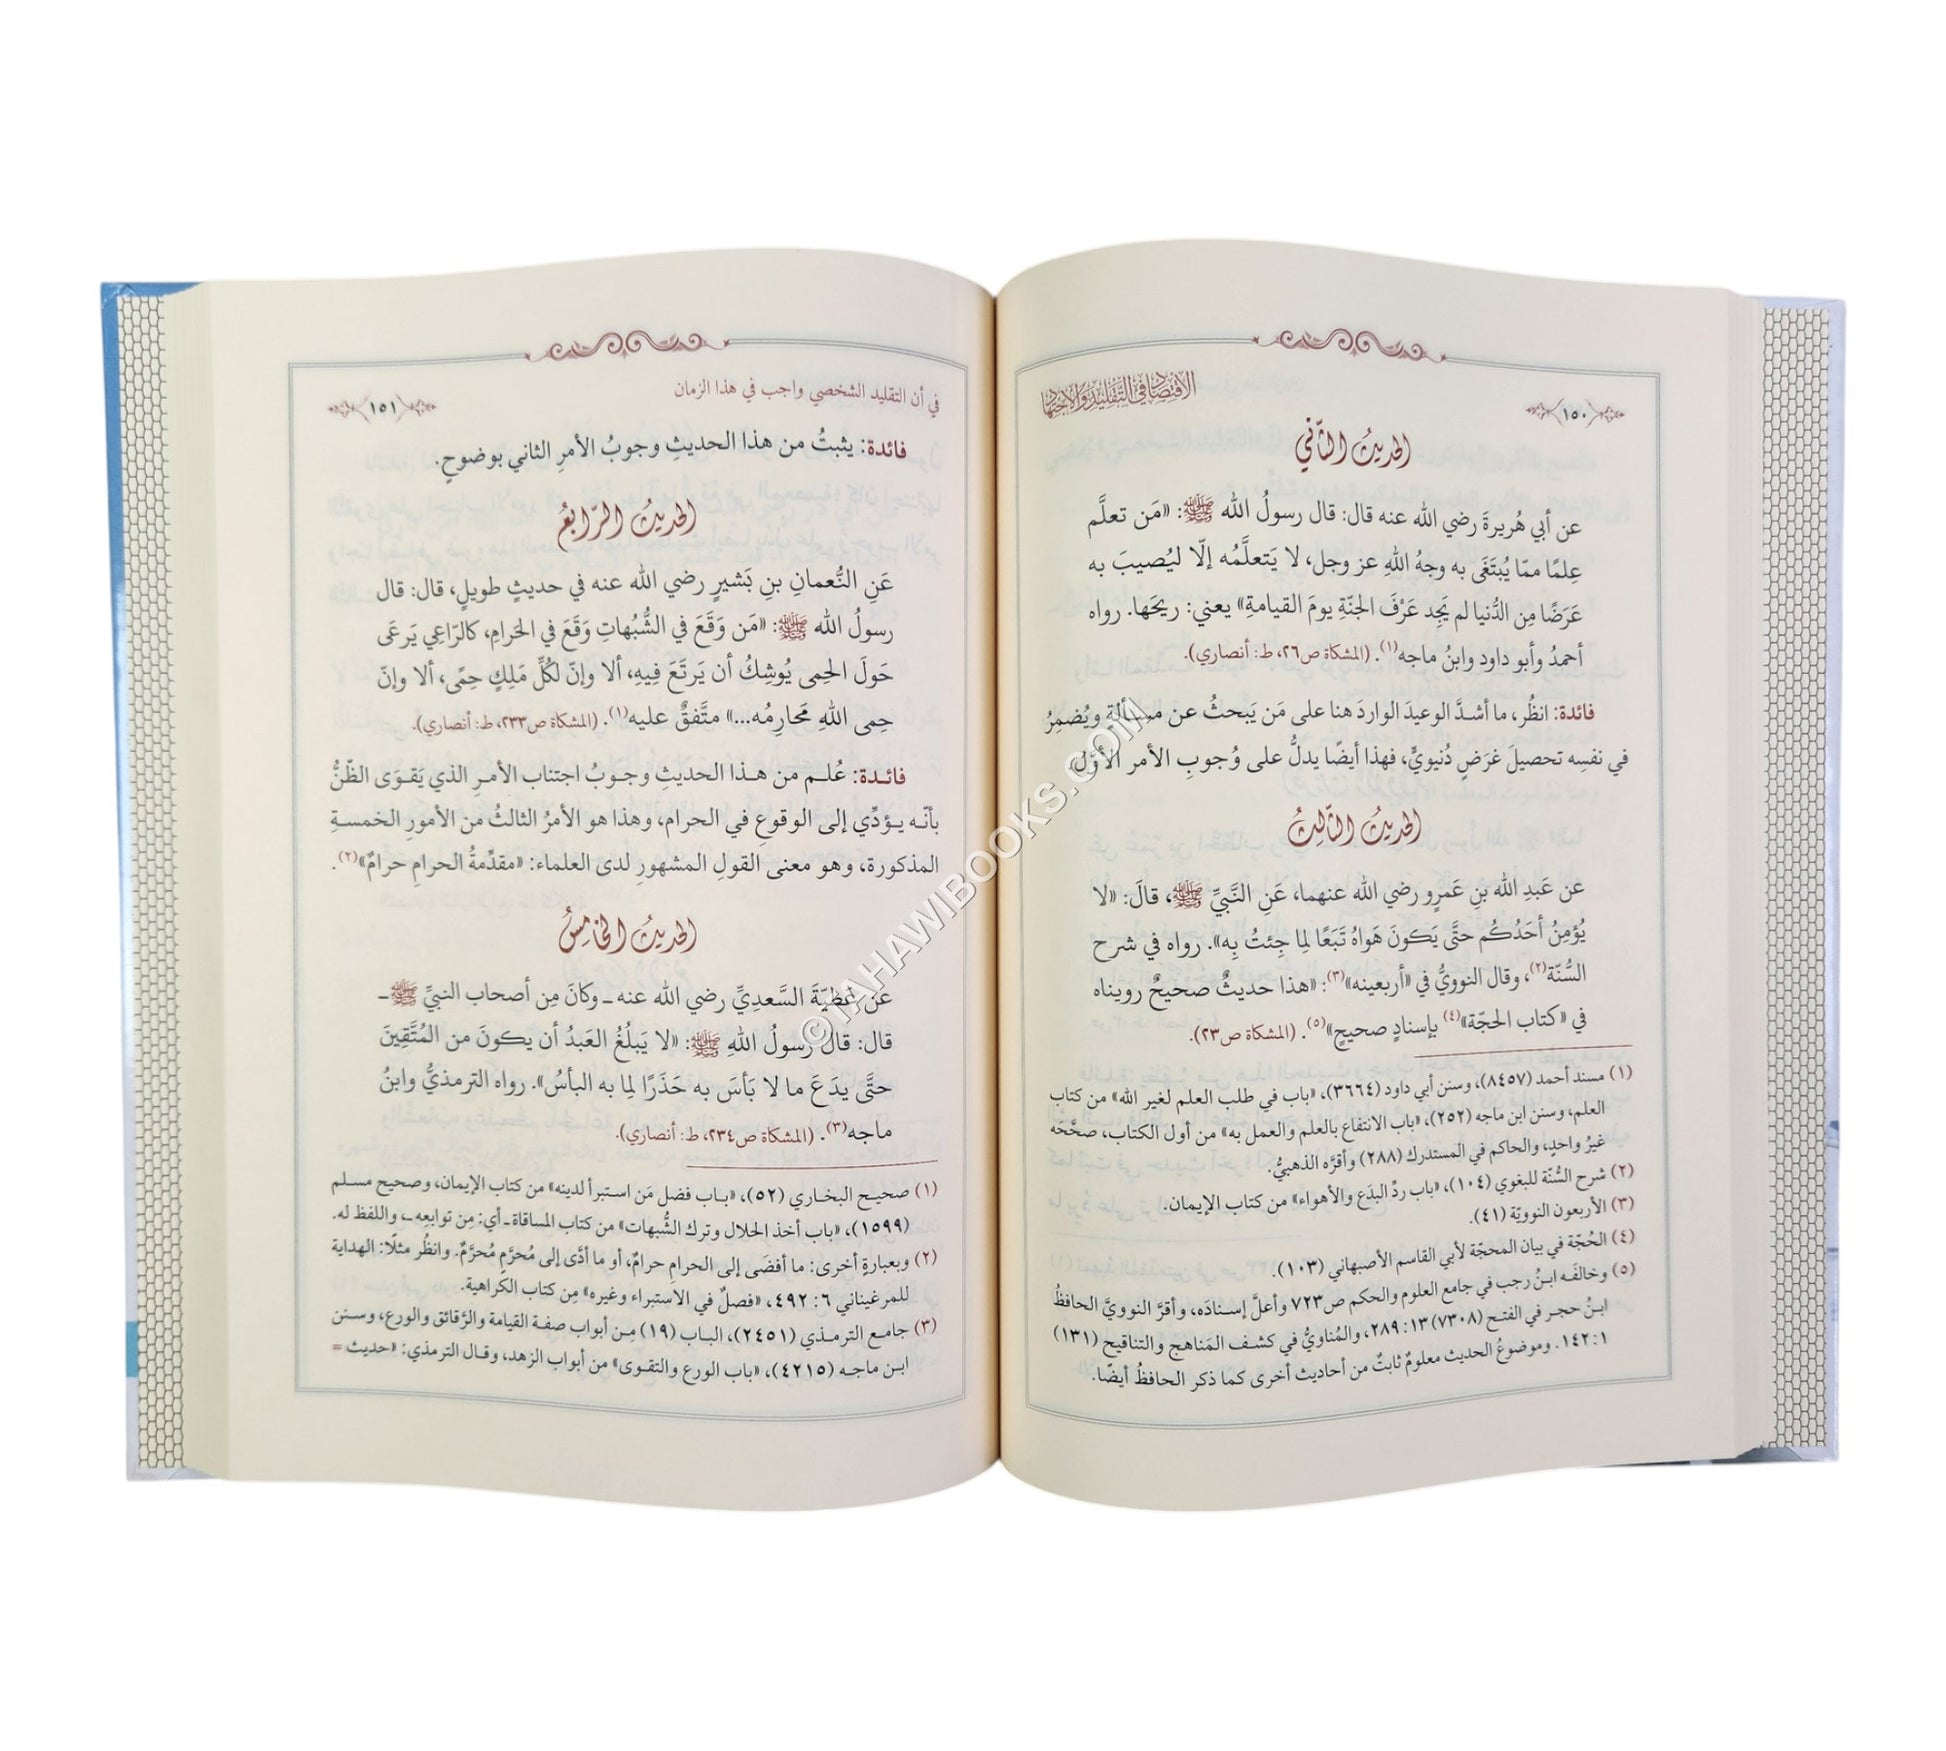 الاقتصاد في التقليد والاجتهاد
١٥٠
الحديث الثاني
عن أبي هُريرةَ رضي الله عنه قال: قال رسولُ الله ﷺ: «مَن تعلَّم
عِلمًا ممّا يُبتَغَى به وجهُ اللهِ عز وجل، لا يَتعلَّمُه إلّا ليُصيبَ به
عَرَضًا مِن الدُّنيا لم يَجِد عَرْفَ الجنّةِ يومَ القيامةِ» يعني: ريحَها. رواه
أحمدُ وأبو داود وابنُ ماجه(١). (المشكاة ص٢٦، ط: أنصاري).
فائدة: انظُر، ما أشدَّ الوعيدَ الواردَ هنا على مَن يَبحثُ عن مسألةٍ ويُضمِرُ
في نفسِه تحصيلَ غرَضٍ دُنيويٍّ، فهذا أيضًا يدلُّ على وُجوبِ الأمر الأوّل.
الحديثُ الثّالِثُ
عن عَبدِ الله بنِ عَمرٍو رضي الله عنهما، عَنِ النَّبيِّ ﷺ، قالَ: «لا
يُؤمِنُ أحَدُكُم حتَّى يَكونَ هَواهُ تَبَعًا لِما جِئتُ بِه». رواه في شرح
السُّنّة(٢)، وقال النوويُّ في «أربعينه»(٣): «هذا حديثٌ صحيحٌ رويناه
في «كتاب الحجّة»(٤) بإسنادٍ صحيحٍ»(٥). (المشكاة ص٢٣).
(١) مسند أحمد (٨٤٥٧)، وسنن أبي داود (٣٦٦٤)، «باب في طلب العلم لغير الله» من كتاب
العلم، وسنن ابن ماجه (٢٥٢)، «باب الانتفاع بالعلم والعمل به» من أول الكتاب، صحَّحَه
غيرُ واحدٍ، والحاكم في المستدرك (٢٨٨) وأقرَّه الذهبيُّ.
(٢) شرح السُّنّة للبغوي (١٠٤)، «باب ردِّ البدَع والأهواء» من كتاب الإيمان.
(٣) الأربعون النوويّة (٤١).
(٤) الحُجّة في بيان المحجّة لأبي القاسم الأصبهاني (١٠٣).
(٥) وخالفَه ابنُ رجب في جامع العلوم والحكم ص٧٢٣ وأعلَّ إسنادَه، وأقرَّ النوويَّ الحافظُ
ابنُ حجر في الفتح (٧٣٠٨) ١٣: ٢٨٩، والمُناويُّ في كشف المَناهج والتناقيح (١٣١)
١: ١٤٢. وموضوعُ الحديث معلومٌ ثابتٌ من أحاديث أخرى كما ذكر الحافظُ أيضًا.
في أن التقليد الشخصي واجب في هذا الزمان
١٥١
فائدة: يثبتُ من هذا الحديثِ وجوبُ الأمرِ الثاني بوضوحٍ.
الحديثُ الرّابعُ
عَنِ النُّعمانِ بنِ بَشيرٍ رضي الله عنه في حديثٍ طويلٍ، قال: قال
رسولُ الله ﷺ: «مَن وَقَعَ في الشُّبُهاتِ وَقَعَ في الحَرامِ، كالرّاعِي يَرعَى
حَولَ الحِمى يُوشِكُ أن يَرتَعَ فِيهِ، ألا وإنّ لكُلِّ مَلِكٍ حِمًى، ألا وإنّ
حِمى اللهِ مَحارِمُه...» متَّفقٌ عليه(١). (المشكاة ص٢٣٣، ط: أنصاري).
فائدة: عُلم من هذا الحديثِ وجوبُ اجتناب الأمرِ الذي يَقوَى الظّنُّ
بأنّه يؤدِّي إلى الوقوعِ في الحرام، وهذا هو الأمرُ الثالثُ من الأمورِ الخمسةِ
المذكورة، وهو معنى القولِ المشهورِ لدى العلماء: «مقدِّمةُ الحرامِ حرامٌ»(٢).
الحديثُ الخامِسُ
عَن عَطيّةَ السَّعدِيِّ رضي الله عنه ـ وكانَ مِن أصحاب النبيِّ ﷺ ـ
قال: قال رسولُ اللهِ ﷺ: «لا يَبلُغُ العَبدُ أن يكونَ من المُتَّقِينَ
حتَّى يدَعَ ما لا بَأسَ به حَذَرًا لِما به البأسُ». رواه الترمذيُّ وابنُ
ماجه(٣). (المشكاة ص٢٣٤، ط: أنصاري).
(١) صحيح البخاري (٥٢)، «باب فضل مَن استبرأ لدينه» من كتاب الإيمان، وصحيح مسلم
(١٥٩٩)، «باب أخذ الحلال وترك الشُّبهات» من كتاب المساقاة ـ أي: مِن توابعِه ـ، واللفظ له.
(٢) وبعبارةٍ أخرى: ما أفضَى إلى الحرامِ حرامٌ، أو ما أدَّى إلى مُحرَّمٍ مُحرَّمٌ. وانظُر مثلًا: الهداية
للمرغيناني ٦: ٤٩٢، «فصلٌ في الاستبراء وغيره» مِن كتاب الكراهية.
(٣) جامع الترمذي (٢٤٥١)، الباب (١٩) مِن أبواب صفة القيامة والرَّقائق والورع، وسنن
ابن ماجه (٤٢١٥)، «باب الورع والتقوى» من أبواب الزهد، وقال الترمذي: «حديث =
© TAHAWIBOOKS.COM